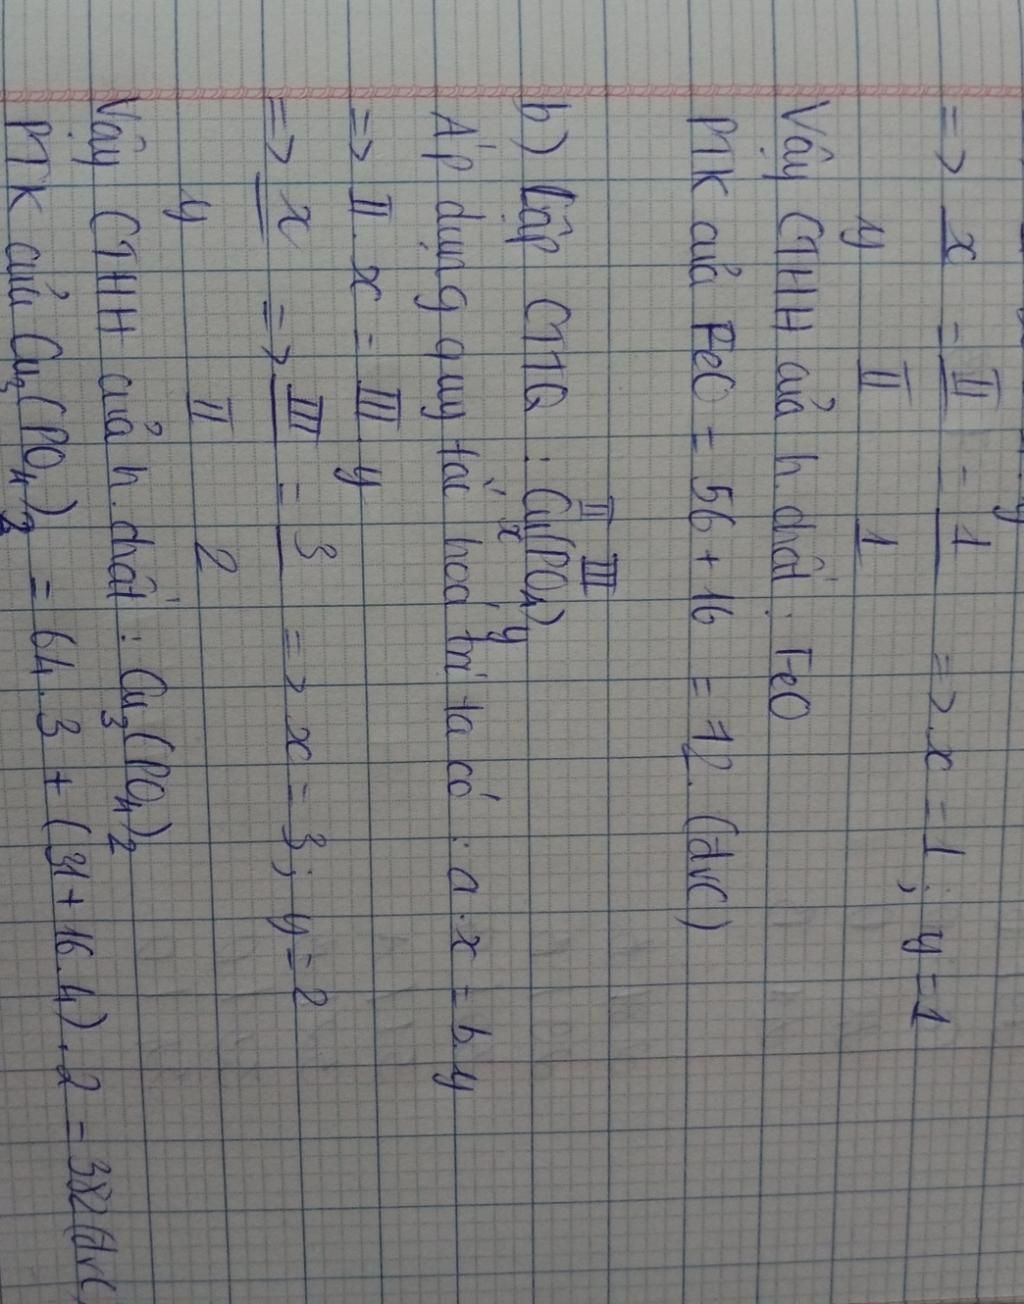 => x = II = 1 => x = 1 ; y = 1
y II 1
Vậy CTHH của h.chất : FeO
PTK của FeO = 56 + 16 = 72 (đvC)
II III
b) Lập CTTQ : Cux(PO4)y
Áp dụng quy tắc hoá trị ta có : a.x = b.y
=> II . x = III . y
=> x => III = 3 => x = 3 ; y = 2
y II 2
Vậy CTHH của h.chất : Cu3(PO4)2
PTK của Cu3(PO4)2 = 64.3 + (31 + 16.4).2 = 382 (đvC)